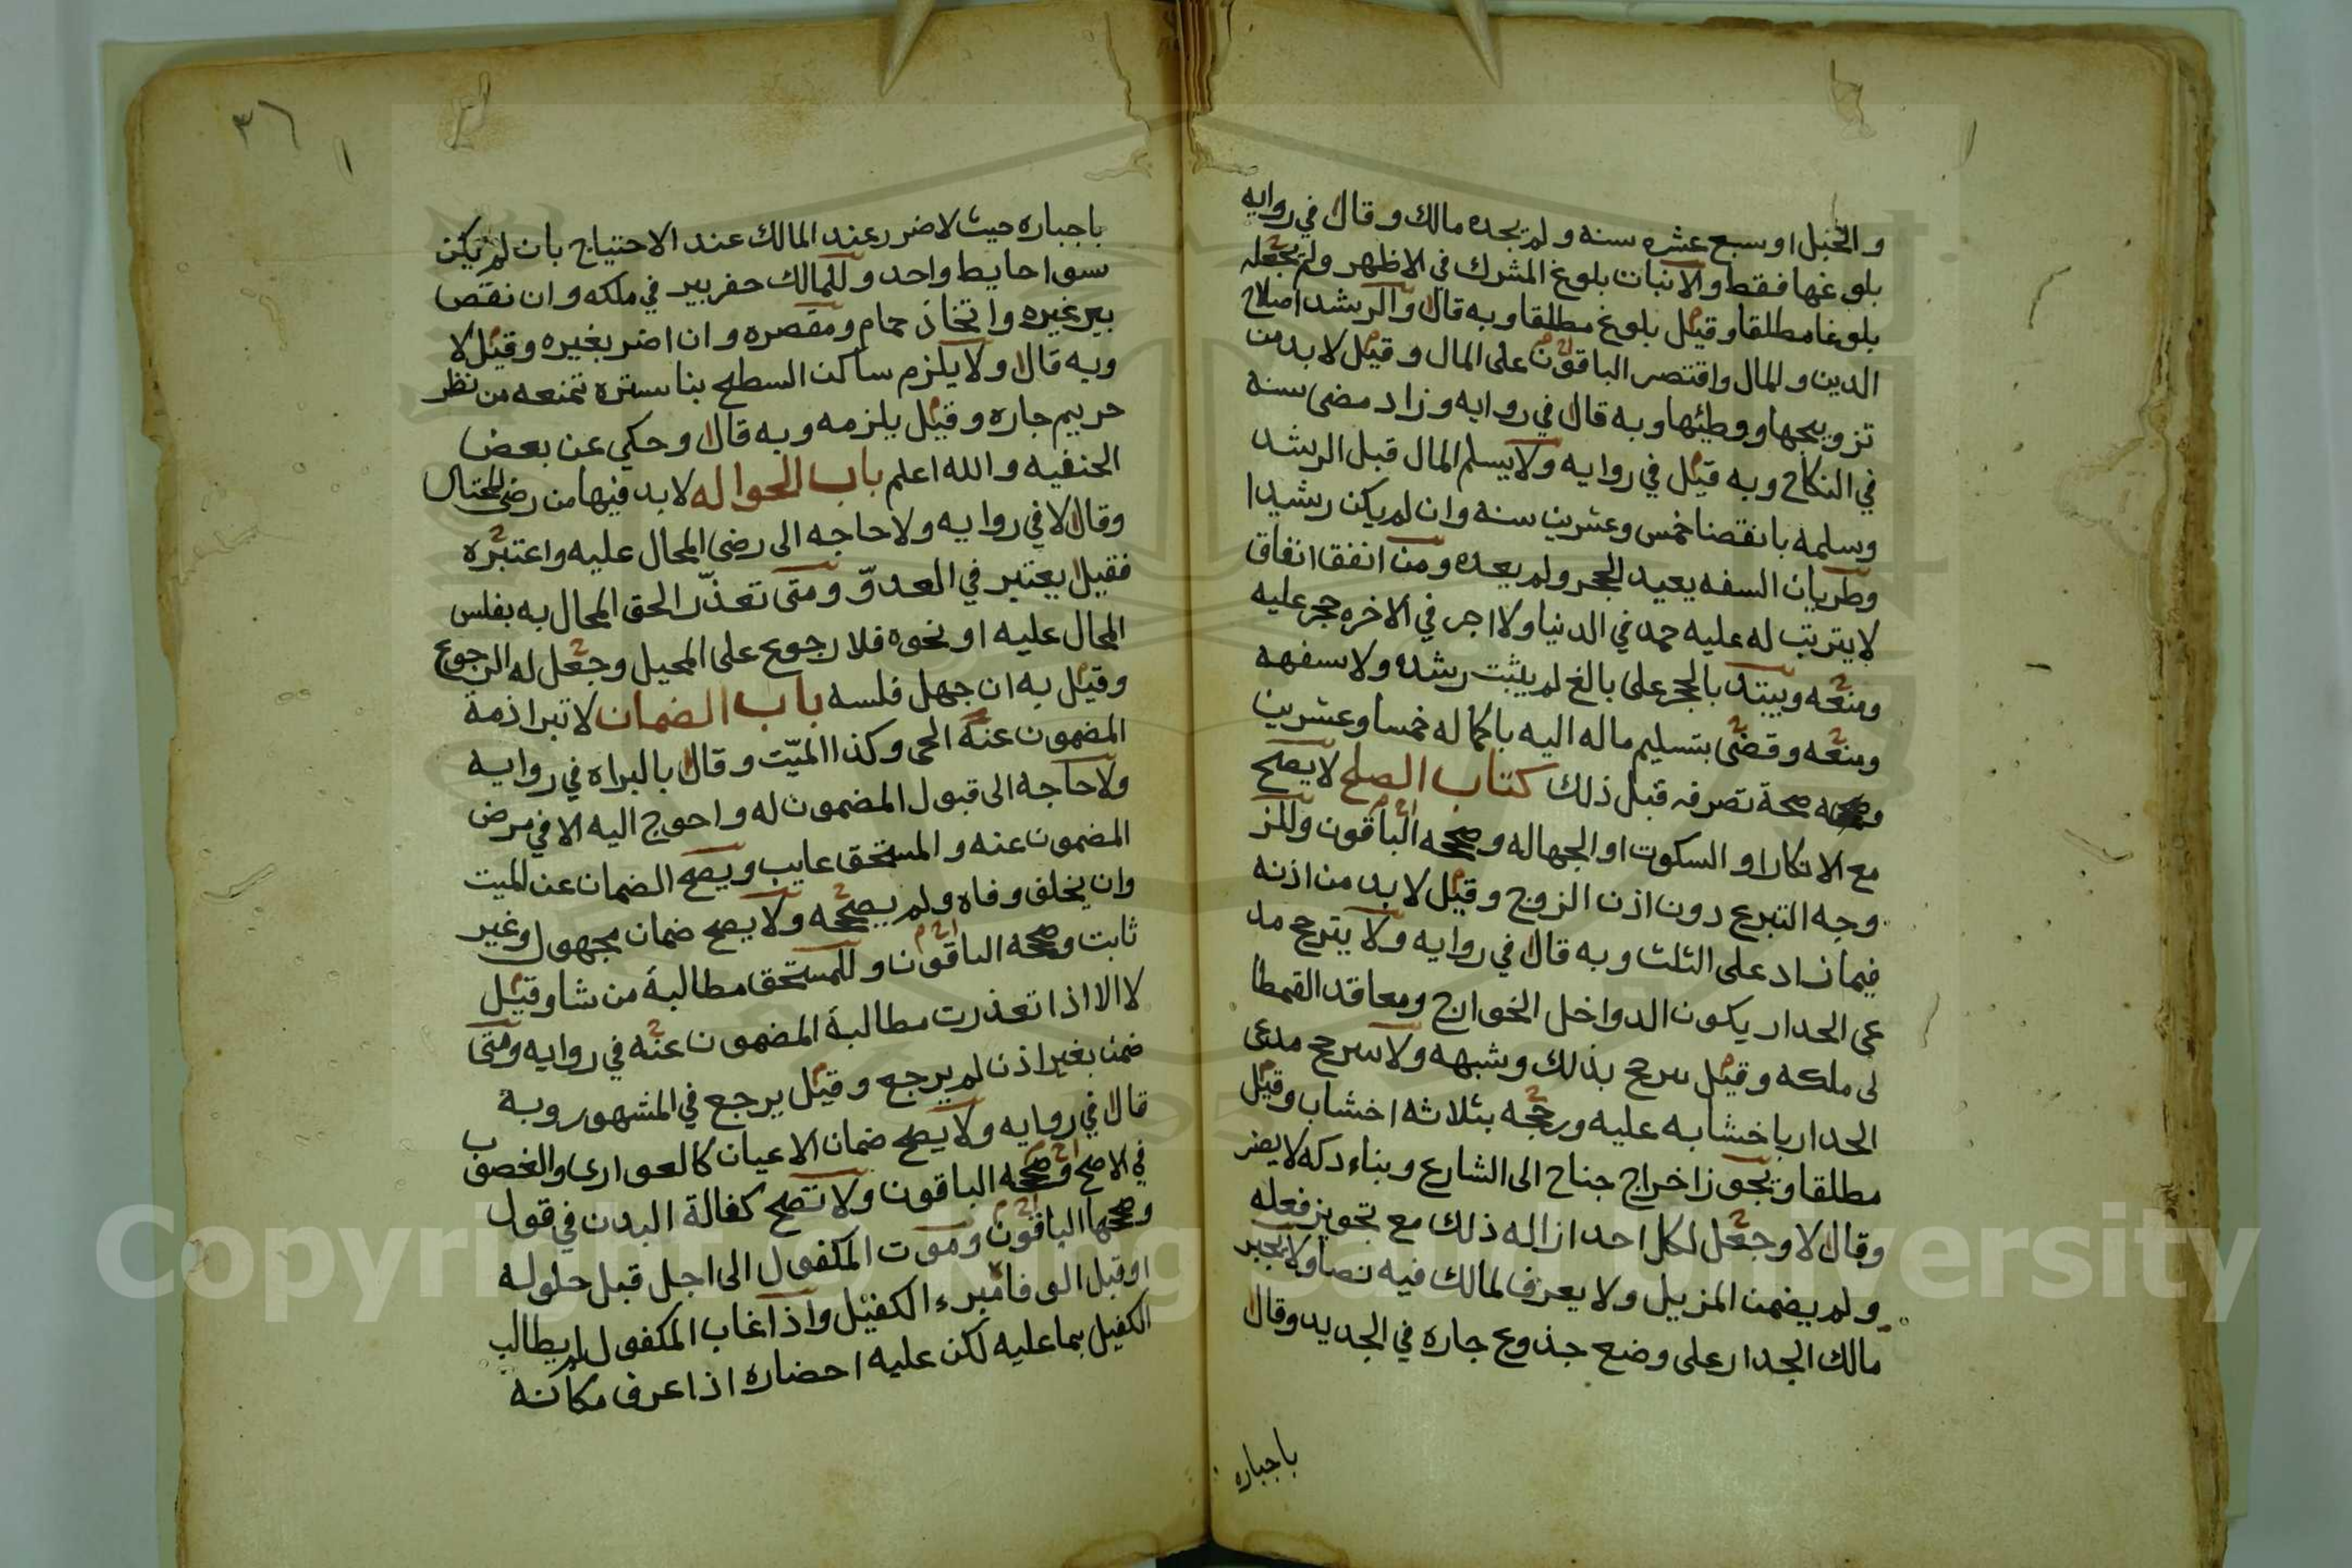 والحبل او سبع عشره سنه ولم يحده مالك وقال في روايه
بلوغها فقط والانبات بلوغ المشرك في الاظهر ولم يجعله
بلوغا مطلقا وقيل بلوغ مطلقا وبه قال والرشد اصلاح
الدين والمال واقتصر الباقون على المال وقيل لا بد من
تزويجها ووطئها وبه قال في روايه وزاد مضى سنه
في النكاح وبه قيل في روايه ولا يسلم المال قبل الرشد
وسلمه بانقضا خمس وعشرين سنه وان لم يكن رشيدا
وطريان السفه يعيد الحجر ولم يعده ومن انفق انفاق
لا يترتب له عليه حمد في الدنيا ولا اجر في الاخره حجر عليه
ومنعه ويبتد بالحجر على بالغ لم يثبت رشده ولا سفهه
ومنعه وقضى بتسليم ماله اليه باكماله خمسا وعشرين
صحة تصرفه قبل ذلك كتاب الصلح لا يصح
مع الانكار او السكوت او الجهاله وصححه الباقون وللز
وجه التبرع دون اذن الزوج وقيل لا بد من اذنه
فيما زاد على الثلث وبه قال في روايه ولا يترجح مد
عى الجدار بكون الدواخل الخوارج ومعاقد القمط ا
لى ملكه وقيل يرجح بذلك وشبهه ولا يترجح مدعى
الجدار باخشابه عليه ورجحه بثلاثه اخشاب وقيل
مطلقا ويجوز اخراج جناح الى الشارع وبناء دكه لا يضر
وقال لا وجعل لكل احد ازاله ذلك مع تجويز فعله
ولم يضمن المزيل ولا يعرف لمالك فيه نصا ولا يجبر
مالك الجدار على وضع جذوع جاره في الجديد وقال
باجباره
٣٦
باجباره حيث لا ضرر عند المالك عند الاحتياج بان لم يكن
سوا حايط واحد وللمالك حفر بير في ملكه وان نقص
بير غيره واتخاذ حمام ومقصره وان اضر بغيره وقيل لا
وبه قال ولا يلزم ساكن السطح بنا ستره تمنعه من نظر
حريم جاره وقيل يلزمه وبه قال وحكي عن بعض
الحنفيه والله اعلم باب الحواله لا بد فيها من رضى المحتال
وقال لا في روايه ولا حاجه الى رضى المحال عليه واعتبره
فقيل يعتبر في العدوّ ومتى تعذّر الحق المحال به بفلس
المحال عليه او نحوه فلا رجوع على المحيل وجعل له الرجوع
وقيل به ان جهل فلسه باب الضمان لا تبرا ذمة
المضمون عنه الحى وكذا الميّت وقال بالبراه في روايه
ولا حاجه الى قبول المضمون له واحوج اليه الا في مرض
المضمون عنه والمستحق غايب ويصح الضمان عن الميت
وان يخلف وفاه ولم يصححه ولا يصح ضمان مجهول وغير
ثابت وصححه الباقون وللمستحق مطالبة من شا وقيل
لا الا اذا تعذرت مطالبة المضمون عنه في روايه ومتى
ضمن بغير اذن لم يرجع وقيل يرجع في المشهور وبه
قال في روايه ولا يصح ضمان الاعيان كالعوارى والغصوب
في الاصح وصححه الباقون ولا تصح كفالة البدن في قول
وصححها الباقون وموت المكفول الى اجل قبل حلوله
او قبل الوفا مبرء الكفيل واذا غاب المكفول لم يطالب
الكفيل بما عليه لكن عليه احضاره اذا عرف مكانه